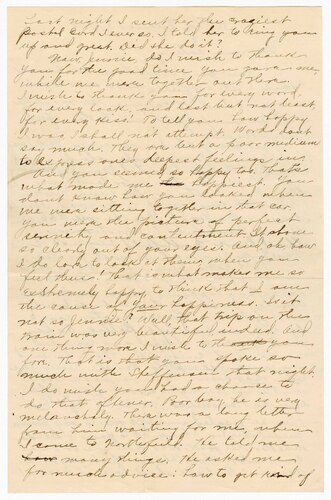 Last night I sent her the craziest
postal card I ever so, I told her to ring you
up and first. Did she do it?
Now, Jennie, do I wish to thank
you for the good time you gave me,
while we were together out there.
I wish to thank you for every word,
for every look, and last but not least
for every kiss! To tell you how happy
I was I shall not attempt. Words don't
say much. They are but a poor medium
to express ones deepest feelings in.
And you seemed so happy too. Thats
what made me happiest. You
dont know how you looked when
we were sitting together in that car
you were the picture of perfect
serenity and contentment. It shone
so clearly out of your eyes. And oh how
I do love to look at them when you
feel there! That is what makes me so
extremely happy to think that I am
the cause of your happiness. Is it
not so Jennie? Well that trip on the
train was very beautiful indeed. And
one thing more I wish to thank you
for. That is that you spoke so
much with Steffensen that night.
I do wish you had a chance to
do that oftener. Poor boy he is very
melancholy. There was a long letter
from him waiting for me, when
I came to Northfield. He told me
many things. He asked me
for much advice: how to get rid of